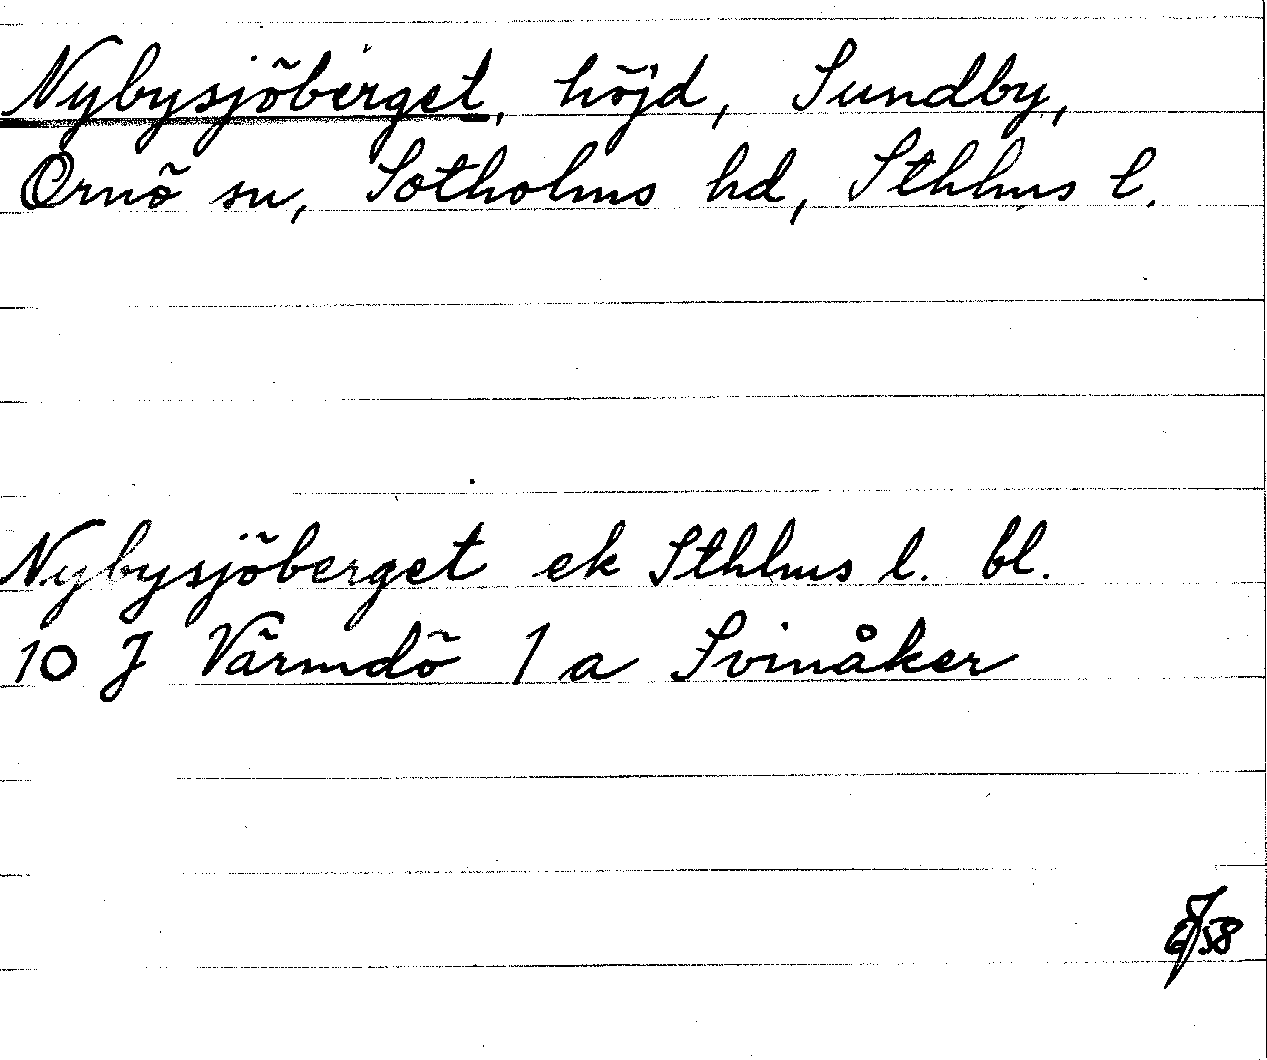 Nybysjöberget, höjd, Sundby,
Ornö sn, Sotholms hd, Sthlms l.
Nybysjöberget ek Sthlms l. bl.
10 J Värmdö 1 a Svinåker
58